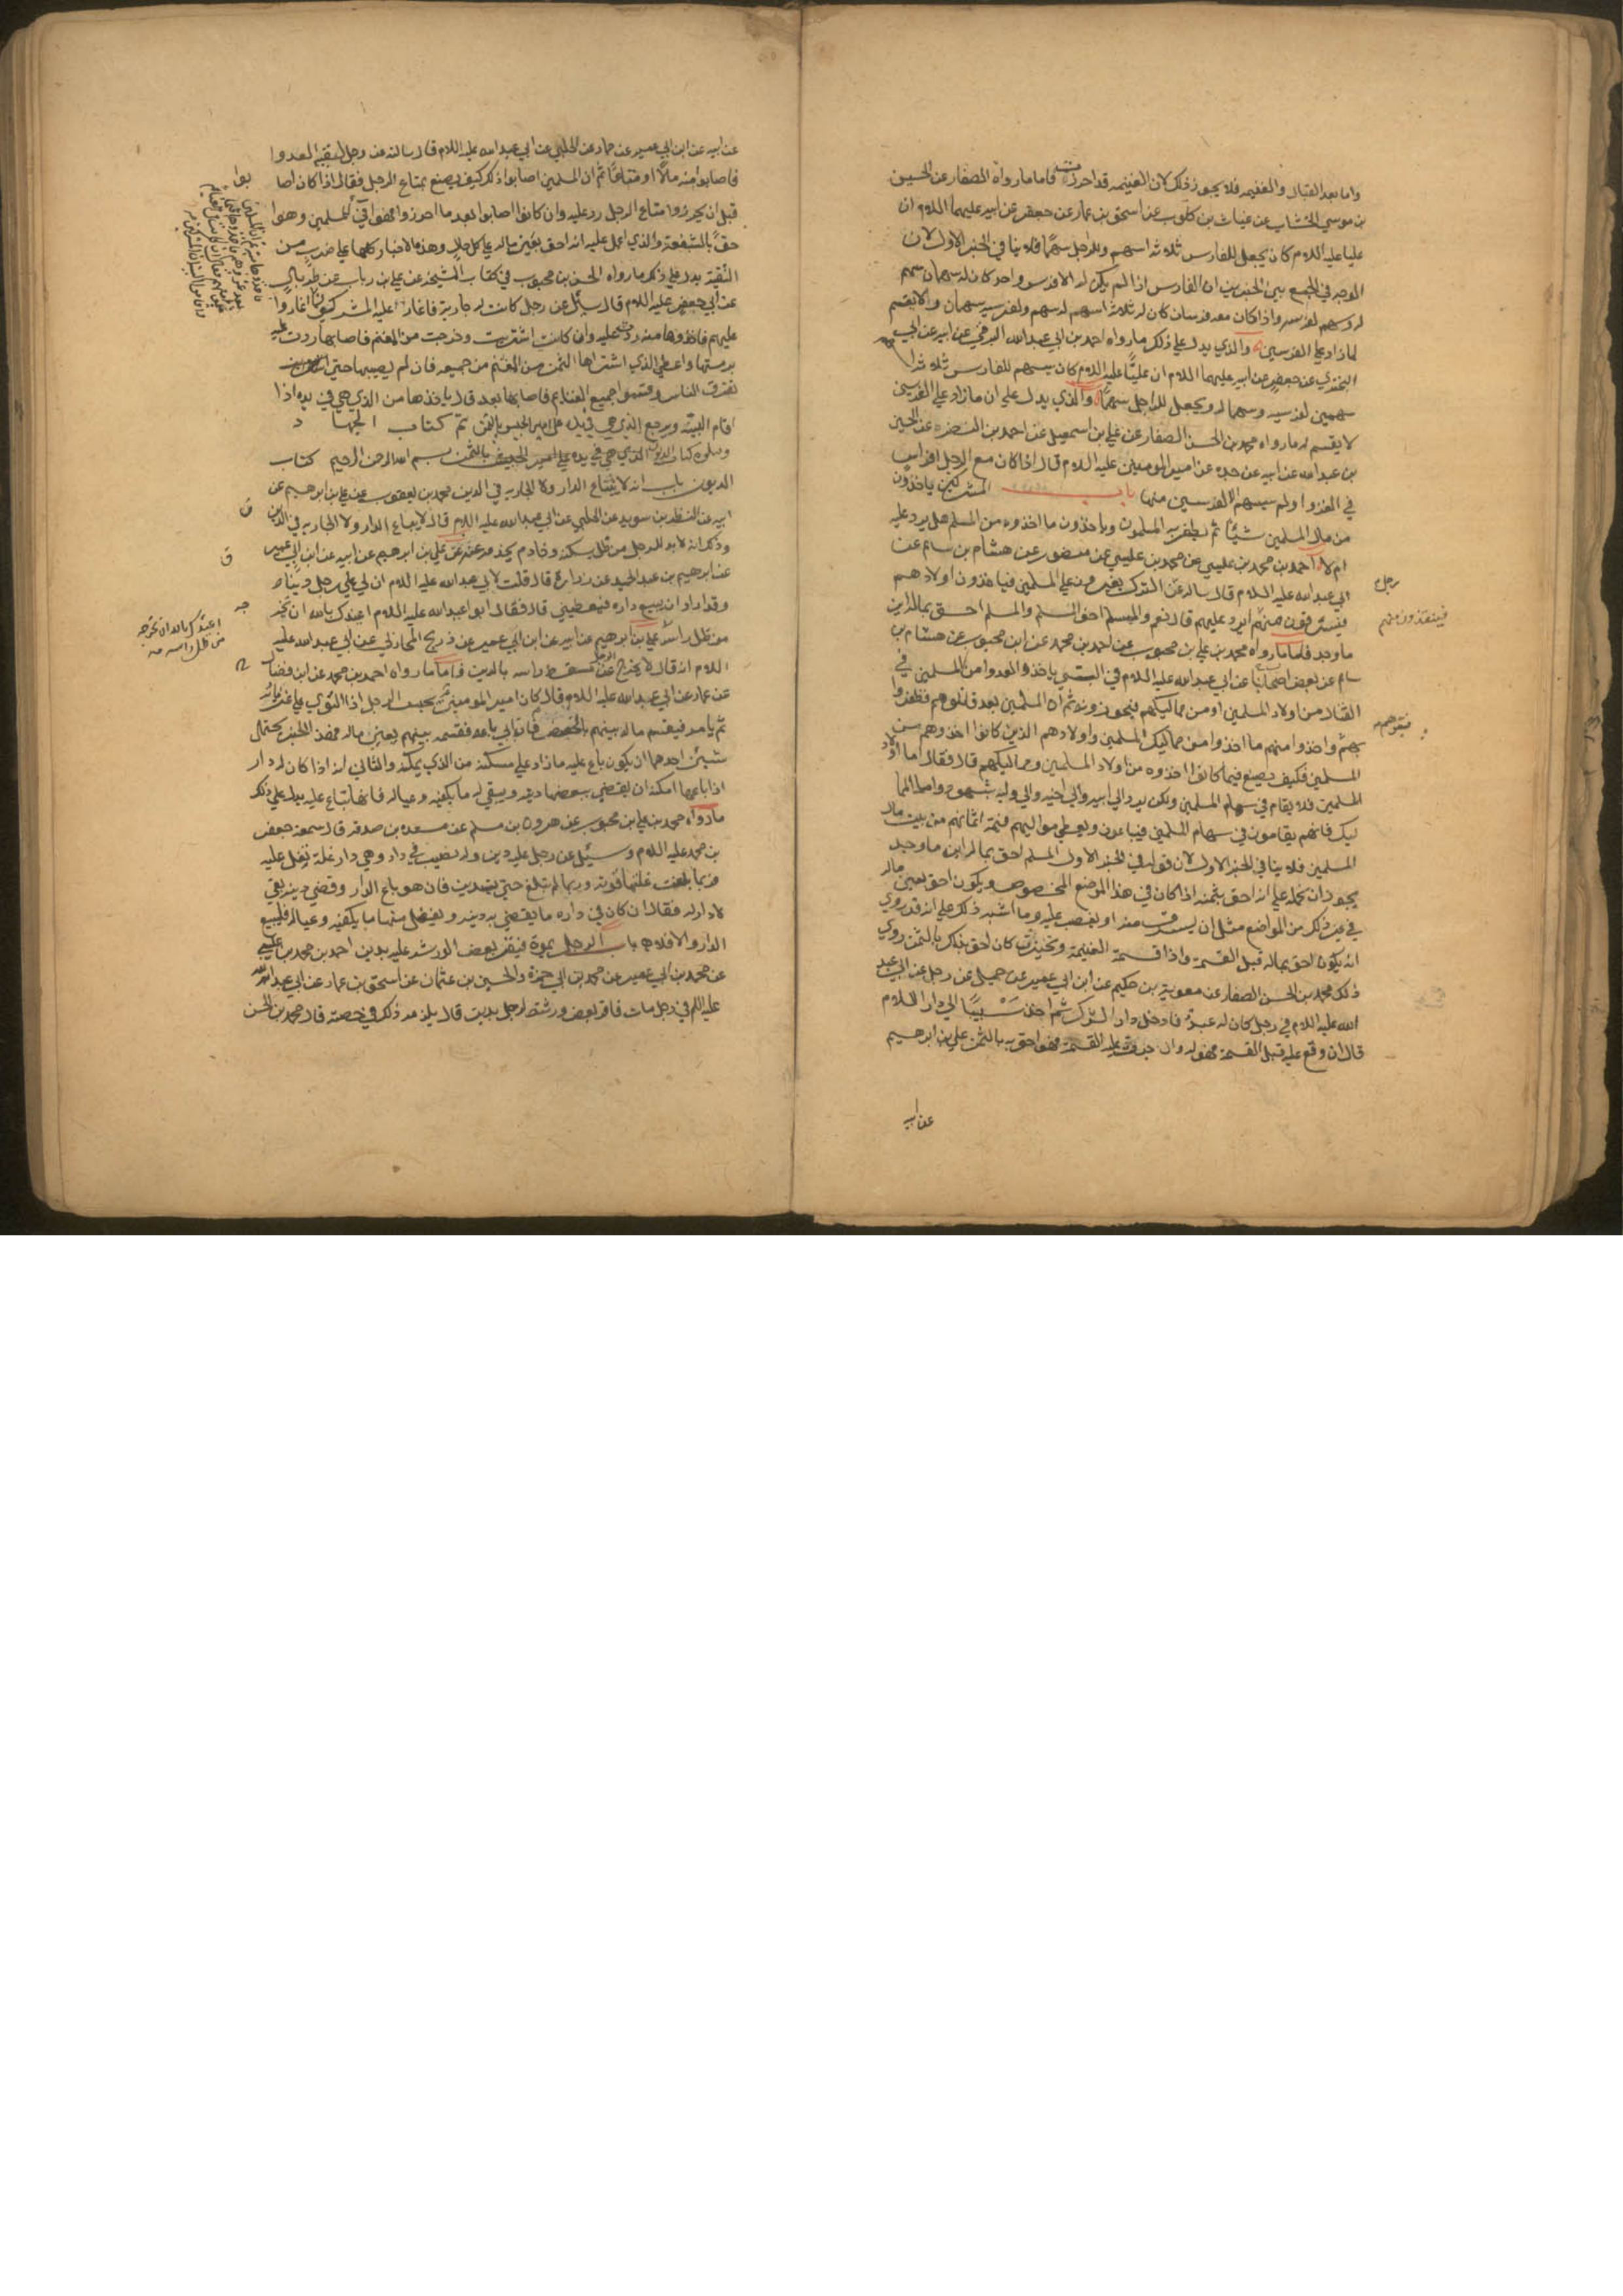 واما بعد القتال والغنيمه فلا يجوز ذلك لان الغنيمه قد احرزت فاما ما رواه الصفار عن الحسن
بن موسي الخشاب عن غياث بن كلوب عن اسحق بن عمار عن جعفر عن ابيه عليهما اللام ان
عليا عليه اللام كان يجعل للفارس ثلاثه اسهم وللراجل سهما فلا ينافي الخبر الاول لان
الوجه في الجمع بين الخبرين ان الفارس اذا لم يكن له الا فرس واحد كان له سهمان سهم
له وسهم لفرسه واذا كان معه فرسان كان له ثلاثة اسهم له سهم ولفرسيه سهمان ولا يقسم
لما زاد علي الفرسين والذي يدل علي ذلك ما رواه احمد بن ابي عبدالله البرقي عن ابيه عن ابي
البختري عن جعفر عن ابيه عليهما اللام ان عليا عليه اللام كان يسهم للفارس ثلاثه
سهمين لفرسه وسهما له ويجعل للراجل سهما والذي يدل علي ان ما زاد علي الفرسين
لا يقسم له ما رواه محمد بن الحسن الصفار عن علي بن اسمعيل عن احمد بن النضر عن الحسين
بن عبدالله عن ابيه عن جده عن امير المومنين عليه اللام قال اذا كان مع الرجل افراس
في الغزوا ولم يسهم الا لفرسين منها باب المشركين ياخذون
من مال المسلمين شيئا ثم يظفر به المسلمون وياخذون ما اخذوه من المسلم هل يرد عليه
ام لا احمد بن محمد بن عيسي عن محمد بن عيسي عن منصور عن هشام بن سالم عن
ابي عبدالله عليه اللام قال ساله رجل عن الترك يغيرون علي المسلمين فياخذون اولادهم
فيسرقون منهم ايرد عليهم قال نعم والمسلم اخو المسلم والمسلم احق بماله اين
ما وجده فاما ما رواه محمد بن علي بن محبوب عن احمد بن محمد عن ابن محبوب عن هشام بن
سالم عن بعض اصحاب ابي عبدالله عليه اللام في السبي ياخذ العدوا من المسلمين في
القتال من اولاد المسلمين او من مماليكهم فيحوزونه ثم ان المسلمين بعد قاتلوهم فظفروا
بهم واخذوا منهم ما اخذوا من مماليك المسلمين واولادهم الذين كانوا اخذوهم من
المسلمين فكيف يصنع فيما كانوا اخذوه من اولاد المسلمين ومماليكهم قال فقال اما اولاد
المسلمين فلا يقام في سهام المسلمين ولكن يرد الي ابيه والي اخيه والي وليه بشهود واما المما
ليك فانهم يقامون في سهام المسلمين فيباعون ويعطي مواليهم قيمة اثمانهم من بيت مال
المسلمين فلا ينافي الخبر الاول لان قوله في الخبر الاول المسلم احق بماله اين ما وجده
يجوز ان نحمله علي انه احق بثمنه اذا كان في هذا الموضع المخصوص ويكون احق بعين ماله
في غير ذلك من المواضع مثل ان يسرق منه او يغصب عليه وما اشبه ذلك علي انه قد روي
انه يكون احق بماله قبل القسمة واذا قسمة الغنيمة وتحيزت كان احق بذلك بالثمن روي
ذلك محمد بن الحسن الصفار عن معوية بن حكيم عن ابن ابي عمير عن جميل عن رجل عن ابي عبد
الله عليه اللام في رجل كان له عبد فادخل دار الشرك ثم اخذ سبيا الي دار اللام
قال ان وقع عليه قبل القسمة فهو له وان جرت عليه القسمة فهو احق به بالثمن علي بن ابرهيم
عن ابيه
رجل
عن ابيه عن ابن ابي عمير عن حماد عن الحلبي عن ابي عبد الله عليه اللام قال سالته عن رجل لقيه العدوا
فاصابوا منه مالا او متاعا ثم ان المسلمين اصابوا ذلك كيف يصنع بمتاع الرجل فقال اذا كان اصا
بوا
قبل ان يحرزوا متاع الرجل رد عليه وان كانوا اصابوا بعد ما احرزوا فهو في للمسلمين وهوا
حق بالشفعة والذي اعمل عليه انه احق بعين ماله علي كل حال وهذه الاخبار كلها علي ضرب من
التقية يدل علي ذلك ما رواه الحسن بن محبوب في كتاب المشيخة عن علي بن رباب عن طربال
عن ابي جعفر عليه اللام قال سئل عن رجل كانت له جارية فاغار عليه المشركون اغاروا
عليهم فاخذوها منه ردت عليه وان كانت اشتريت وخرجت من المغنم فاصابها ردت عليه
برمتها واعطي الذي اشتراها الثمن من المغنم من جميعه فان لم يصيبها حتي
تفرق الناس وقسموا جميع الغنايم فاصابها بعد قال ياخذها من الذي هي في يده اذا
اقام البينه ويرجع الذي هي في يده علي امير الجيش بالثمن تم كتاب الجهاد
ويتلوه كتاب الديون بسم الله الرحمن الرحيم كتاب
الديون باب انه لا يبتاع الدار ولا الجاريه في الدين محمد بن يعقوب عن علي بن ابرهيم عن
ابيه عن النضر بن سويد عن الحلبي عن ابي عبدالله عليه اللام قال لا يباع الدار ولا الجاريه في الدين
وذلك انه لا بد للرجل من ظل يسكنه وخادم يخدمه عنه عن علي بن ابرهيم عن ابيه عن ابن ابي عمير
عن ابرهيم بن عبد الحميد عن زراره قال قلت لابي عبدالله عليه اللام ان لي علي رجل دينا
وقد اراد ان يبيع داره فيعطيني قال فقال ابوا عبدالله عليه اللام اعيذك بالله ان تخر
من ظل راسه علي بن ابرهيم عن ابيه عن ابن ابي عمير عن ذريح المحاربي عن ابي عبد الله عليه
اللام انه قال لا يخرج الرجل عن مسقط راسه بالدين فاما ما رواه احمد بن محمد عن ابن فضال
عن عمار عن ابي عبدالله عليه اللام قال كان امير المومنين يحبس الرجل اذا التوي علي غرمائه
ثم يامر فيقسم ماله بينهم بالحصص فان ابي باعه فقسمه بينهم يعني ماله فهذا الخبر يحتمل
شيئين احدهما ان يكون باع عليه ما زاد علي مسكنه من الذي يمكنه والثاني انه اذا كان له دار
اذا باعها امكنه ان يقضي ببعضها دينه ويبقي له ما يكفيه وعياله فانها تباع عليه يدل علي ذلك
ما رواه محمد بن علي بن محبوب عن هرون بن مسلم عن مسعده بن صدقه قال سمعة جعفر
بن محمد عليه اللام وسئيل عن رجل عليه دين وله نصيب في دار وهي دار غلة تغل عليه
فربما بلغت غلتها قوته وربما لم تبلغ حتي يستدين فان هو باع الدار وقضي دينه بقي
لا دار له فقال ان كان في داره ما يقضي به دينه ويفضل منها ما يكفيه وعياله فليبيع
الدار والا فلا باب الرجل يموت فيقر بعض الورثه عليه بدين احمد بن محمد بن عيسي
عن محمد بن ابي عمير عن محمد بن ابي حمزة والحسين بن عثمان عن اسحق بن عمار عن ابي عبدالله
عليه اللم في رجل مات فاقر بعض ورثته لرجل بدين قال يلزمه ذلك في حصته قال محمد بن الحسن
اعيذك بالله ان تخرجه
من ظل راسه